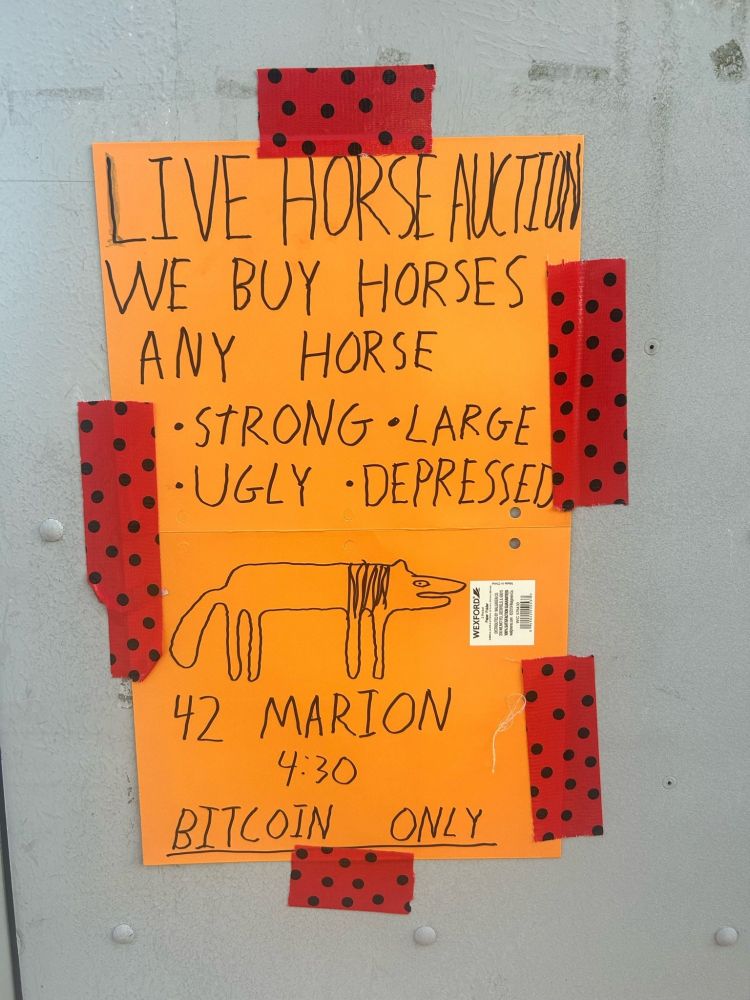 LIVE HORSE AUCTION
WE BUY HORSES
ANY HORSE
• STRONG • LARGE
• UGLY • DEPRESSED
WEXFORD
Made in China
42 MARION
4:30
BITCOIN ONLY